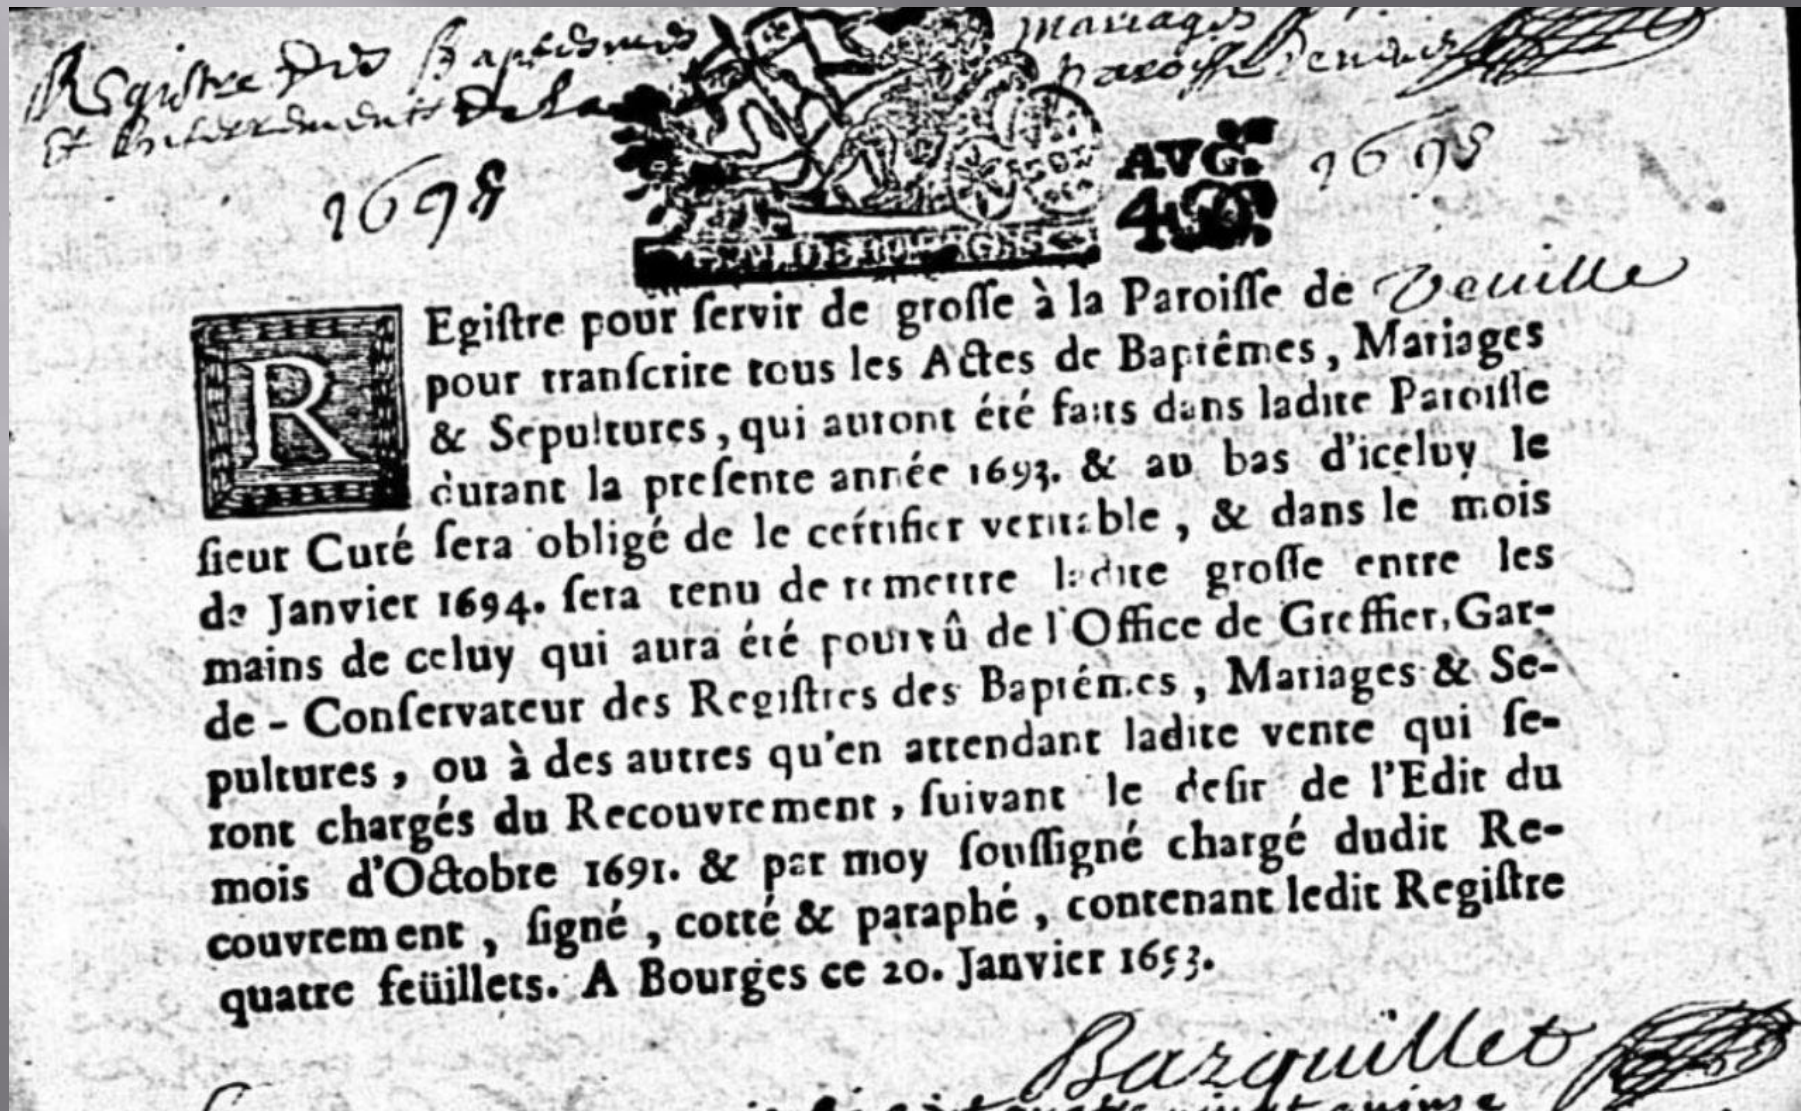 Registre Des Baptesmes mariages
Et Enterrements De La paroisse
1698 AVG. 1698
REgiſtre pour ſervir de groſſe à la Paroiſſe de Veuille
pour tranſcrire tous les Actes de Baptêmes, Mariages
& Sepultures, qui auront été faits dans ladite Paroiſſe
durant la preſente année 1693. & au bas d'iceluy le
ſieur Curé ſera obligé de le certifier veritable, & dans le mois
de Janvier 1694. ſera tenu de remettre ladite groſſe entre les
mains de celuy qui aura été pourvû de l'Office de Greffier, Gar-
de - Conſervateur des Regiſtres des Baptémes, Mariages & Se-
pultures, ou à des autres qu'en attendant ladite vente qui ſe-
ront chargés du Recouvrement, ſuivant le deſir de l'Edit du
mois d'Octobre 1691. & par moy ſouſſigné chargé dudit Re-
couvrement, ſigné, cotté & paraphé, contenant ledit Regiſtre
quatre feüillets. A Bourges ce 20. Janvier 1693.
Bazquillet